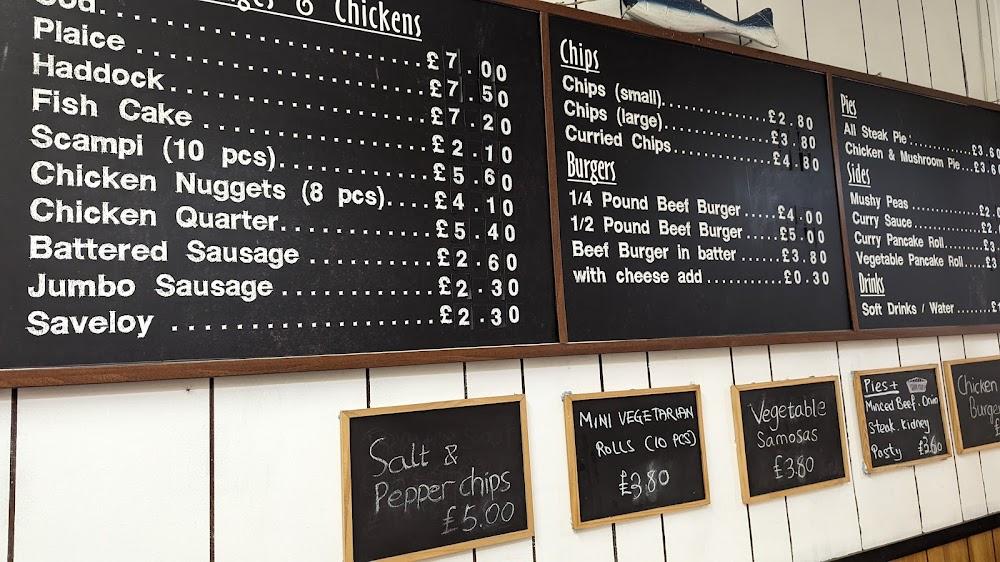 & Chickens
Cod..........£7.00
Plaice..........£7.50
Haddock..........£7.20
Fish Cake..........£2.10
Scampi (10 pcs)..........£5.60
Chicken Nuggets (8 pcs)....£4.10
Chicken Quarter..........£5.40
Battered Sausage..........£2.60
Jumbo Sausage..........£2.30
Saveloy..........£2.30
Chips
Chips (small)..........£2.80
Chips (large)..........£3.80
Curried Chips..........£4.80
Burgers
1/4 Pound Beef Burger.....£4.00
1/2 Pound Beef Burger.....£5.00
Beef Burger in batter.....£3.80
with cheese add..........£0.30
Pies
All Steak Pie..........£3.60
Chicken & Mushroom Pie...£3.60
Sides
Mushy Peas..........£2.
Curry Sauce..........£2.
Curry Pancake Roll.......£3
Vegetable Pancake Roll....£3
Drinks
Soft Drinks / Water.......£1
Salt &
Pepper chips
£5.00
MINI VEGETARIAN
ROLLS (10 PCS)
£3.80
Vegetable
Samosas
£3.80
Pies+
Minced Beef. Onion
Steak. Kidney
Pasty £3.60
Chicken
Burger
£